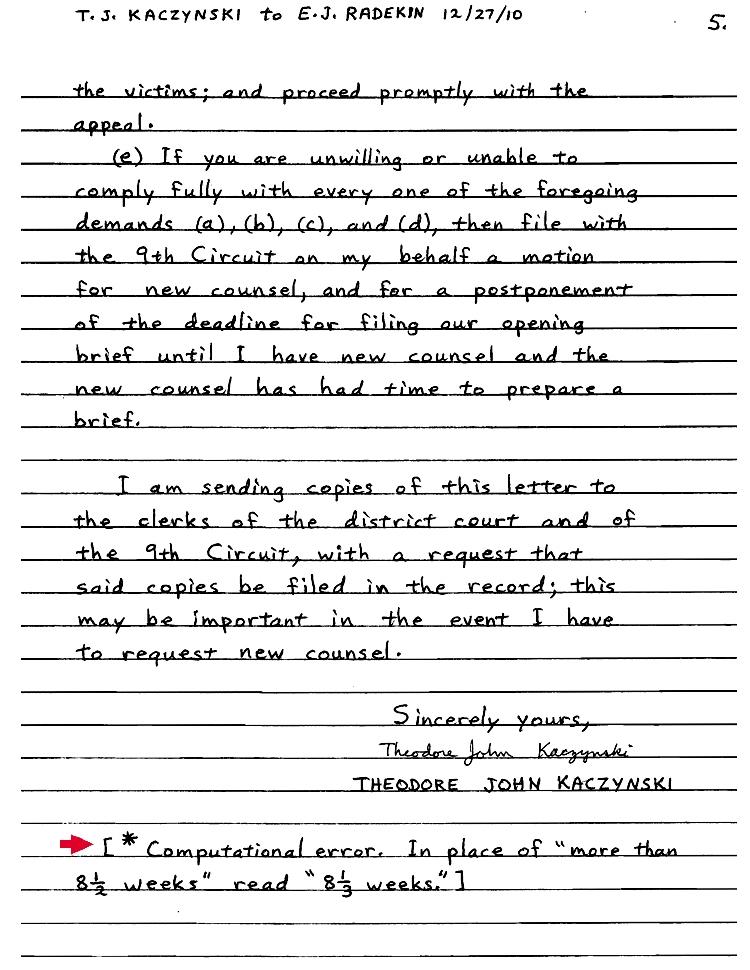 T. J. KACZYNSKI to E. J. RADEKIN 12/27/10 5.
the victims; and proceed promptly with the
appeal.
(e) If you are unwilling or unable to
comply fully with every one of the foregoing
demands (a), (b), (c), and (d), then file with
the 9th Circuit on my behalf a motion
for new counsel, and for a postponement
of the deadline for filing our opening
brief until I have new counsel and the
new counsel has had time to prepare a
brief.
I am sending copies of this letter to
the clerks of the district court and of
the 9th Circuit, with a request that
said copies be filed in the record; this
may be important in the event I have
to request new counsel.
Sincerely yours,
Theodore John Kaczynski
THEODORE JOHN KACZYNSKI
[* Computational error. In place of "more than
8½ weeks" read "8⅓ weeks."]